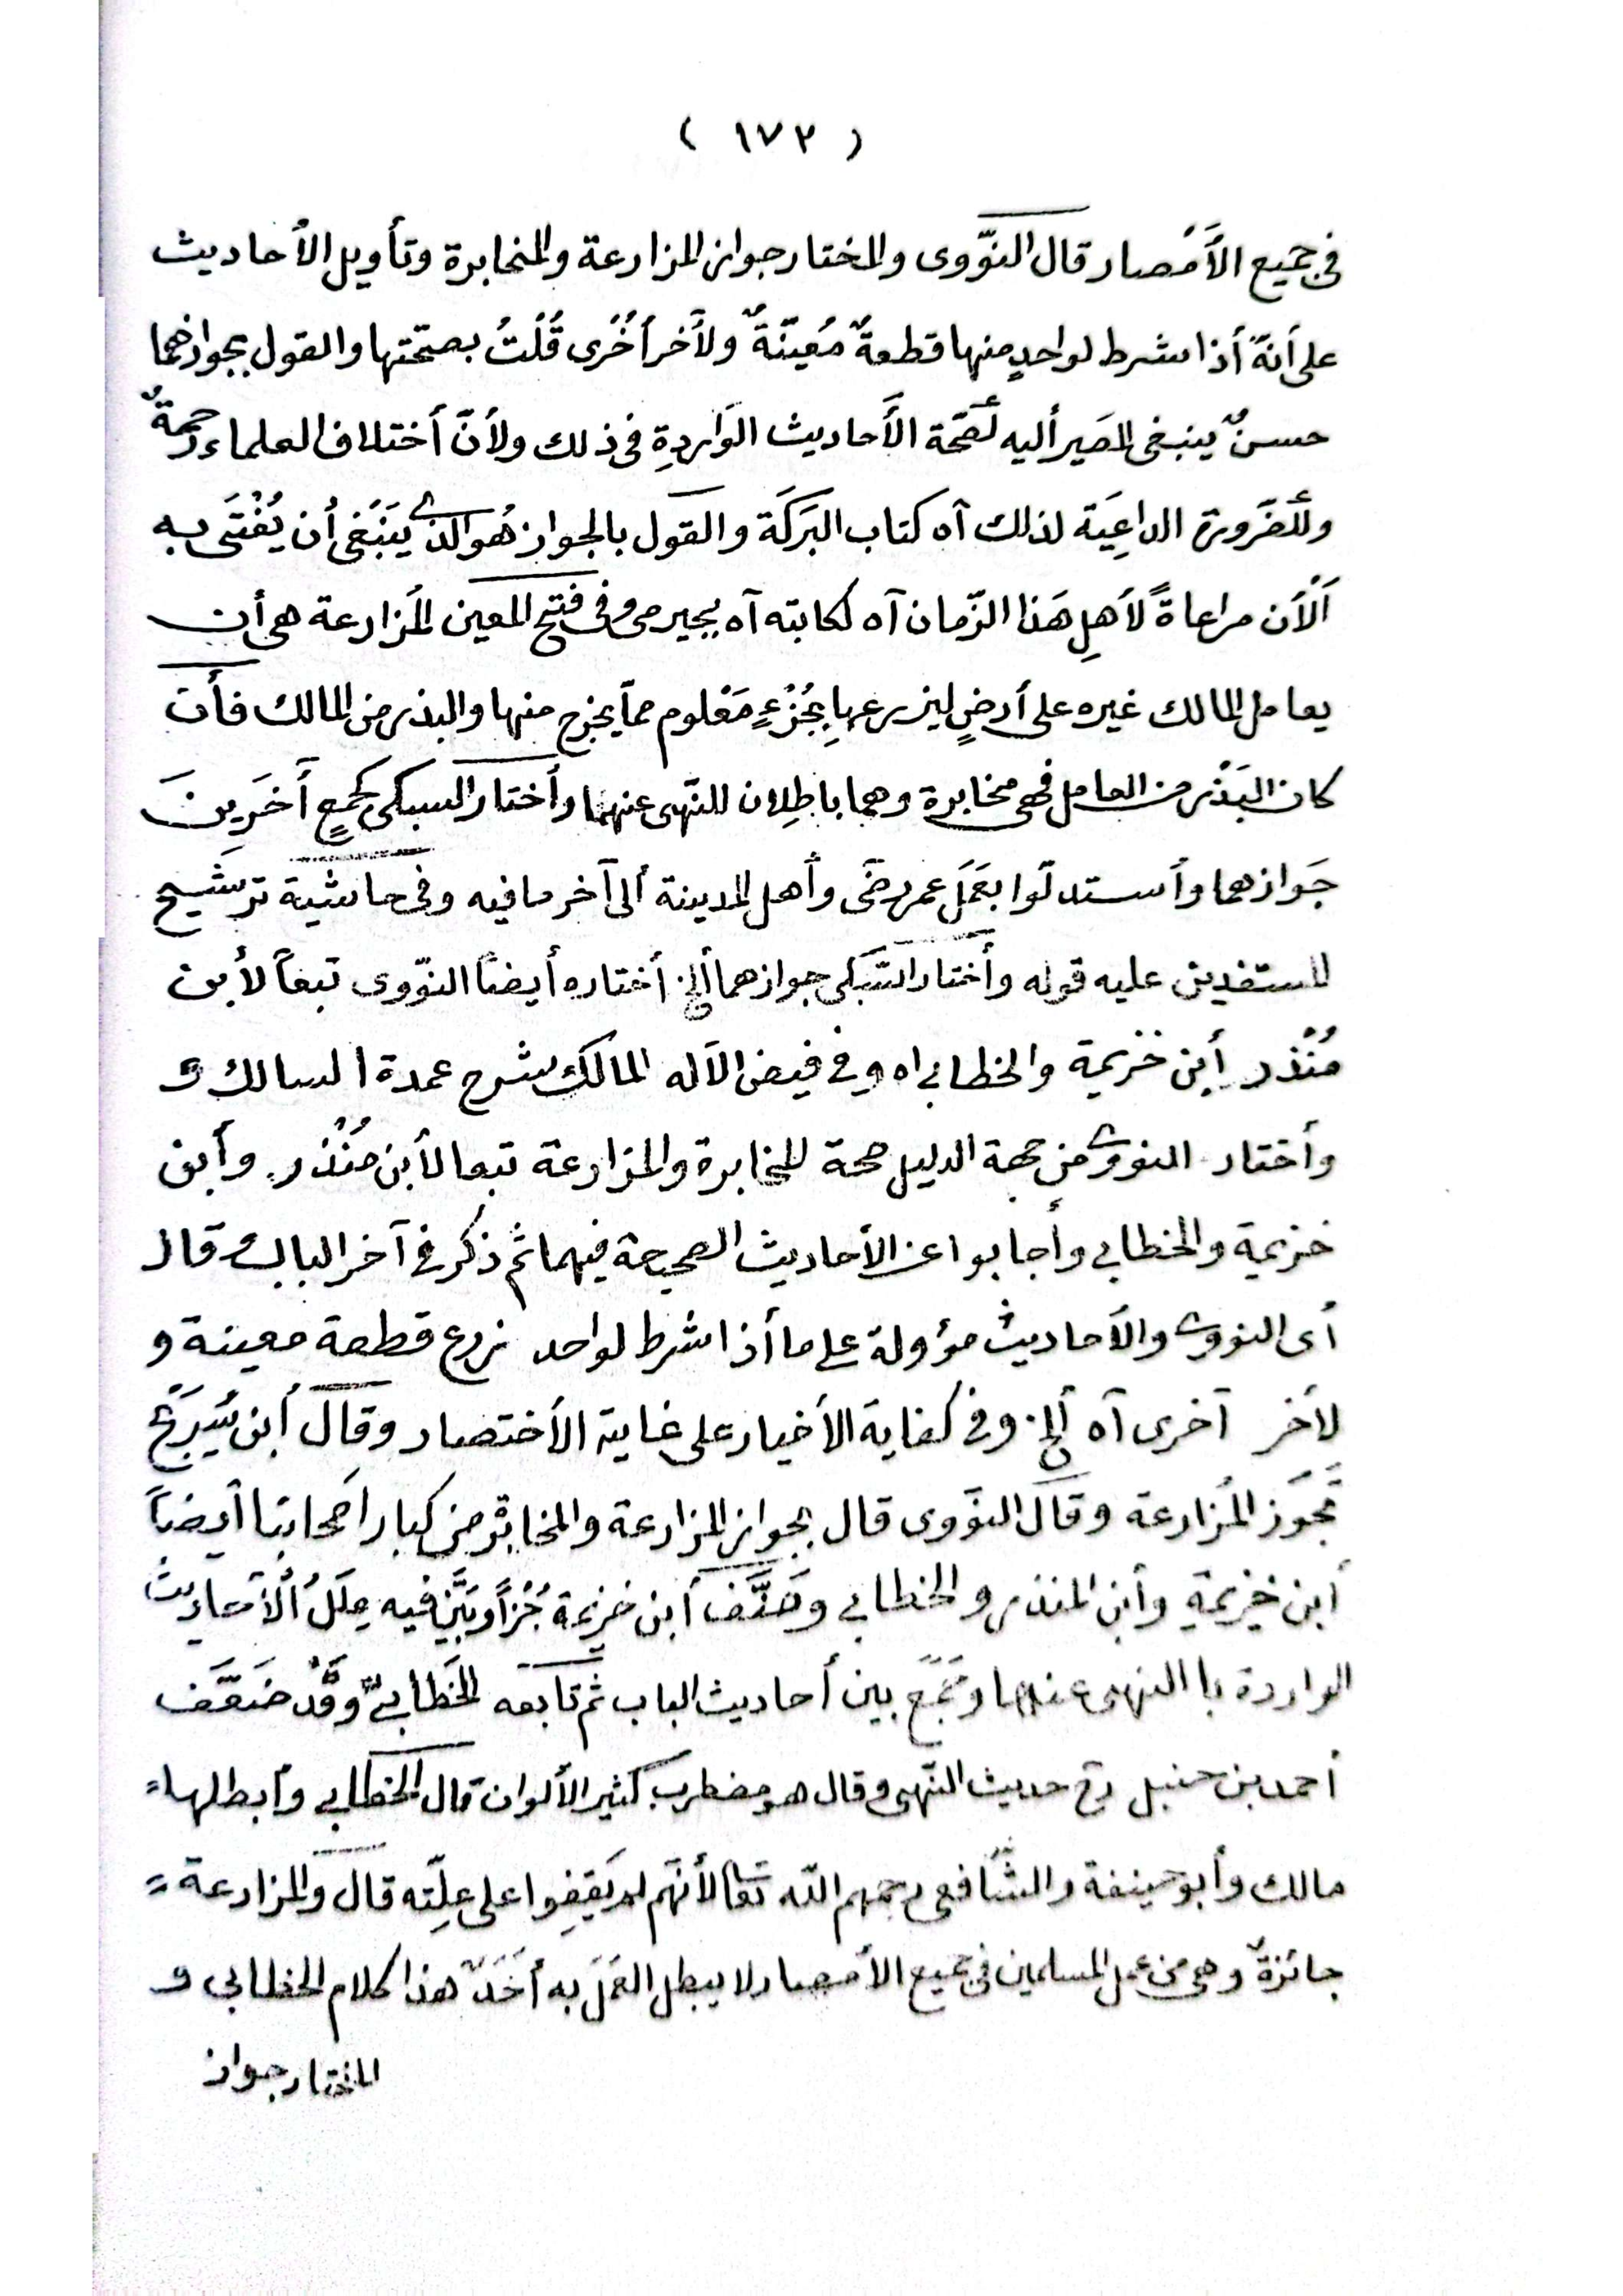 ( ١٧٣ )
فى جميع الأَمْصار قال النّووى والمختار جواز المزارعة والمخابرة وتأويل الأحاديث
على أنهّ أذا شرط لواحدٍ منها قطعةٌ مُعينّةٌ ولأخر أُخْرى قُلْتُ بصحّتها والقول بجوازهما
حسنٌ ينبغى المَصير أليه لصّحة الأَحاديث الوَاردةِ فى ذلك ولأنّ أختلاف العلماء رحمةٌ
وللضّرورة الداعِيَة لذلك آه كتاب البَرَكَة والقول بالجواز هُو الّذى يَنبَغى أن يُفْتَى به
اَلْأن مراعاةً لأَهلِ هَذا الزّمان آه لكابته آه بجيرمى وفى فتح المعين المُزارعة هى أن
يعامل المالك غيره على أرضٍ ليزرعها بِجُزْءٍ مَعْلوم ممّا يخرج منها والبذر من المالك فأن
كان البَذْر من العامل فهى مخابرة وهما باطِلان للنّهى عنهما وأختار السبكى كجمعٍ أَخَرِينَ
جَوازهما وأستدلّوا بعَمَل عمر رضَى وأهل المدينة ألى آخر مافيه وفى حاشية ترشَيح
المستفدين عليه قوله وأختار السّبكى جوازهما ألخ أختاره أيضًا النوّوى تبعاً لأبن
مُنْذر أبن خزيمة والخطابى اه وفى فيض الآله المالك شرح عمدة السالك و
وأختار النووى من جهة الدليل صحة المخابرة والمزارعة تبعا لأبن مُنْذر وأبن
خزيمة والخطابى وأجابوا عن الأحاديث الصحيحة فيهما ثم ذكر فى آخر الباب وقال
أى النووى والأحاديث مؤولة على ما أذا شرط لواحد زرع قطعة معينة و
لأخر آخرى آه ألخ وفى كفاية الأخيار على غاية الأختصار وقال أبن سُرَيْج
تَجوَز المُزارعة وقال النوَوى قال بجواز المزارعة والمخابرة من كبار اصحابنا أيضاً
أبن خزيمةِ وأبن المنذر والخطابى وصَنَّف أبن خزيمة جُزْأً وبَيَّن فيه عِلَلُ الْأَحاديث
الواردة با النهى عنهما وجَمَعَ بين أحاديث الباب ثم تَابَعَه الخَطّابىّ وقَدْ ضَعَّف
أحمد بن حنبل رح حديث النّهى وقال هو مضطرب كثير الألوان قال الخطابى وأبطلها
مالك وأبو حينفة والشّافعى رحمهم اللّه تعالى لأنهّم لم يَقِفوا على عِلّته قال والمزارعة
جائزةٌ وهى من عمل المسلمين فى جميع الأمصار لا يبطل العَمَل به أَحَدٌ هذا كلام الخطابى و
المختار جواز